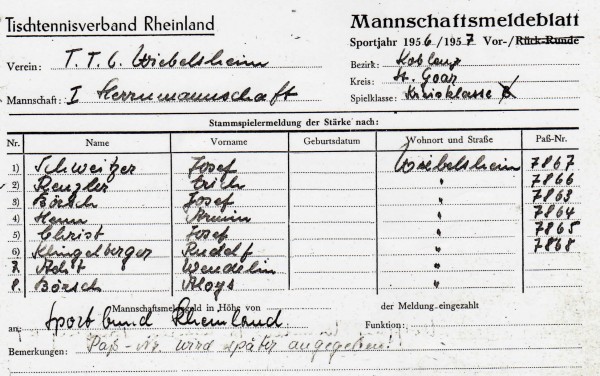 Tischtennisverband Rheinland
Mannschaftsmeldeblatt
Sportjahr 1956/1957 Vor-/Rück-Runde
Verein: T. T. C. Wiebelsheim
Bezirk: Koblenz
Kreis: St. Goar
Mannschaft: I Herrenmannschaft
Spielklasse: Kreisklasse
Stammspielermeldung der Stärke nach:
Nr. Name Vorname Geburtsdatum Wohnort und Straße Paß-Nr.
1) Schweitzer Josef Wiebelsheim 7867
2) Renzler Erich " 7866
3) Börsch Josef " 7863
4) Henn Armin " 7864
5) Christ Josef " 7865
6) Klingelberger Rudolf " 7868
7. Wendelin "
8. Börsch Aloys "
Mannschaftsmeldegeld in Höhe von der Meldung eingezahlt
an: Sportbund Rheinland Funktion:
Bemerkungen: Paß-Nr. wird später angegeben!